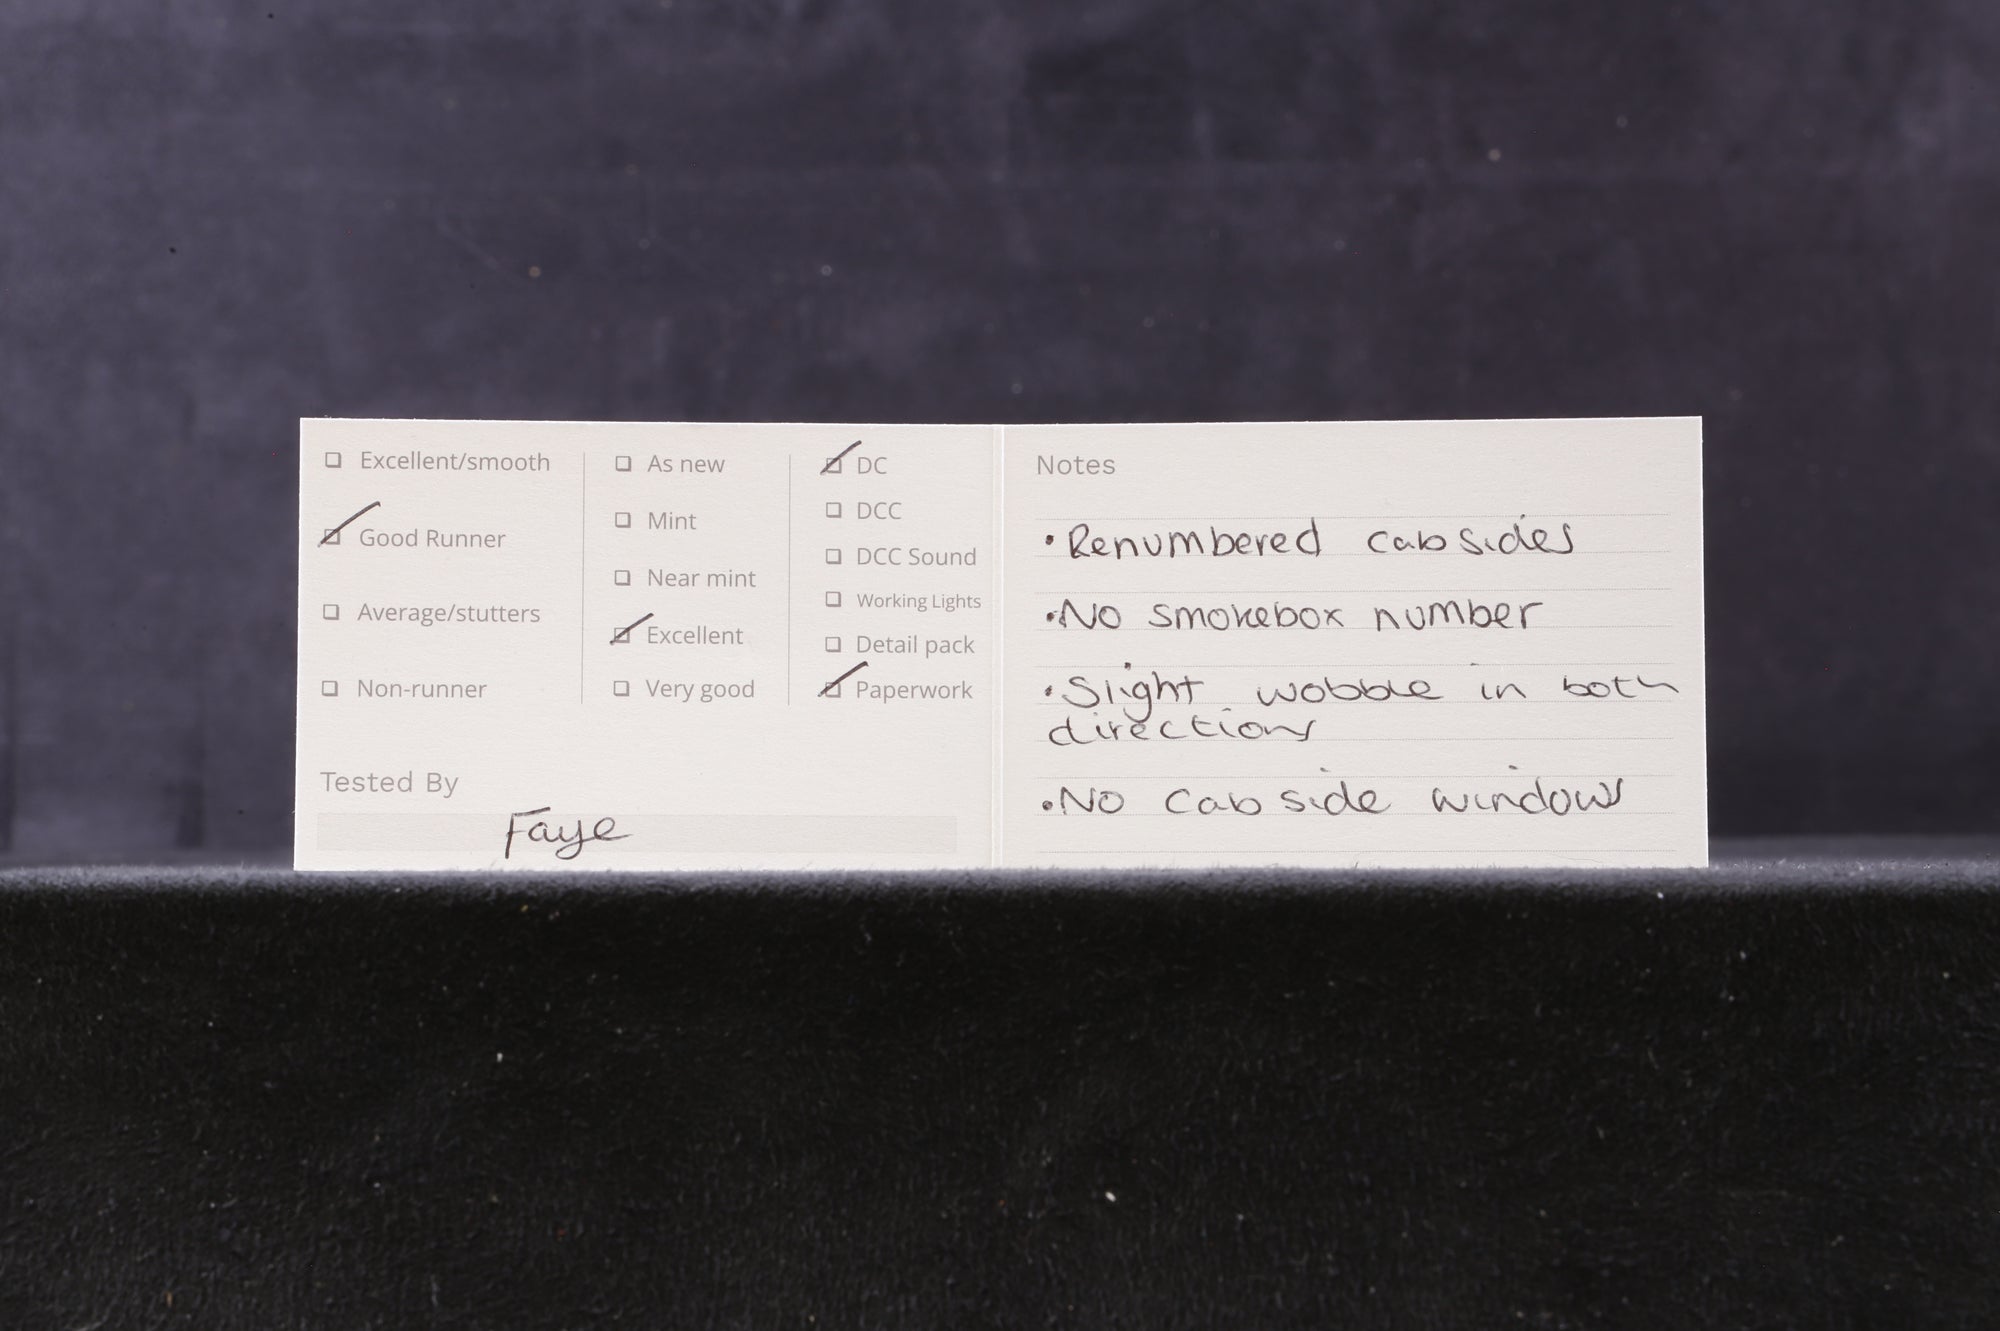 Excellent/smooth
Good Runner
Average/stutters
Non-runner
As new
Mint
Near mint
Excellent
Very good
DC
DCC
DCC Sound
Working Lights
Detail pack
Paperwork
Tested By
Faye
Notes
• Renumbered cab sides
• No smokebox number
• Slight wobble in both
directions
• No cab side windows